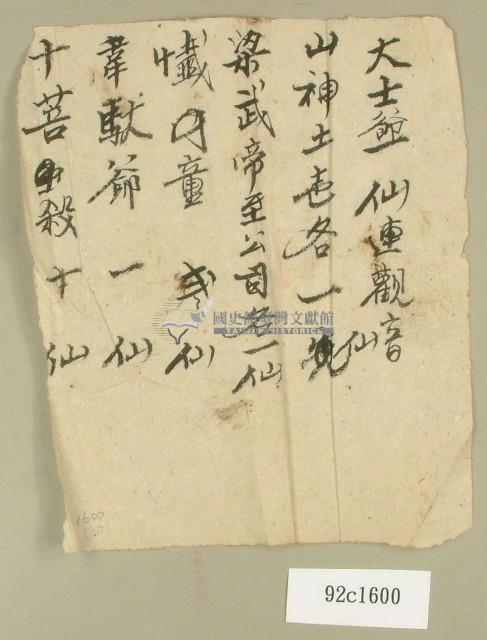 大士爺仙連觀音
山神土地各一仙
梁武帝至公司各一仙
懺童弍仙
韋馱爺一仙
十菩殺十仙
國史館臺灣文獻館
TAIWAN HISTORICA
1600
92c1600